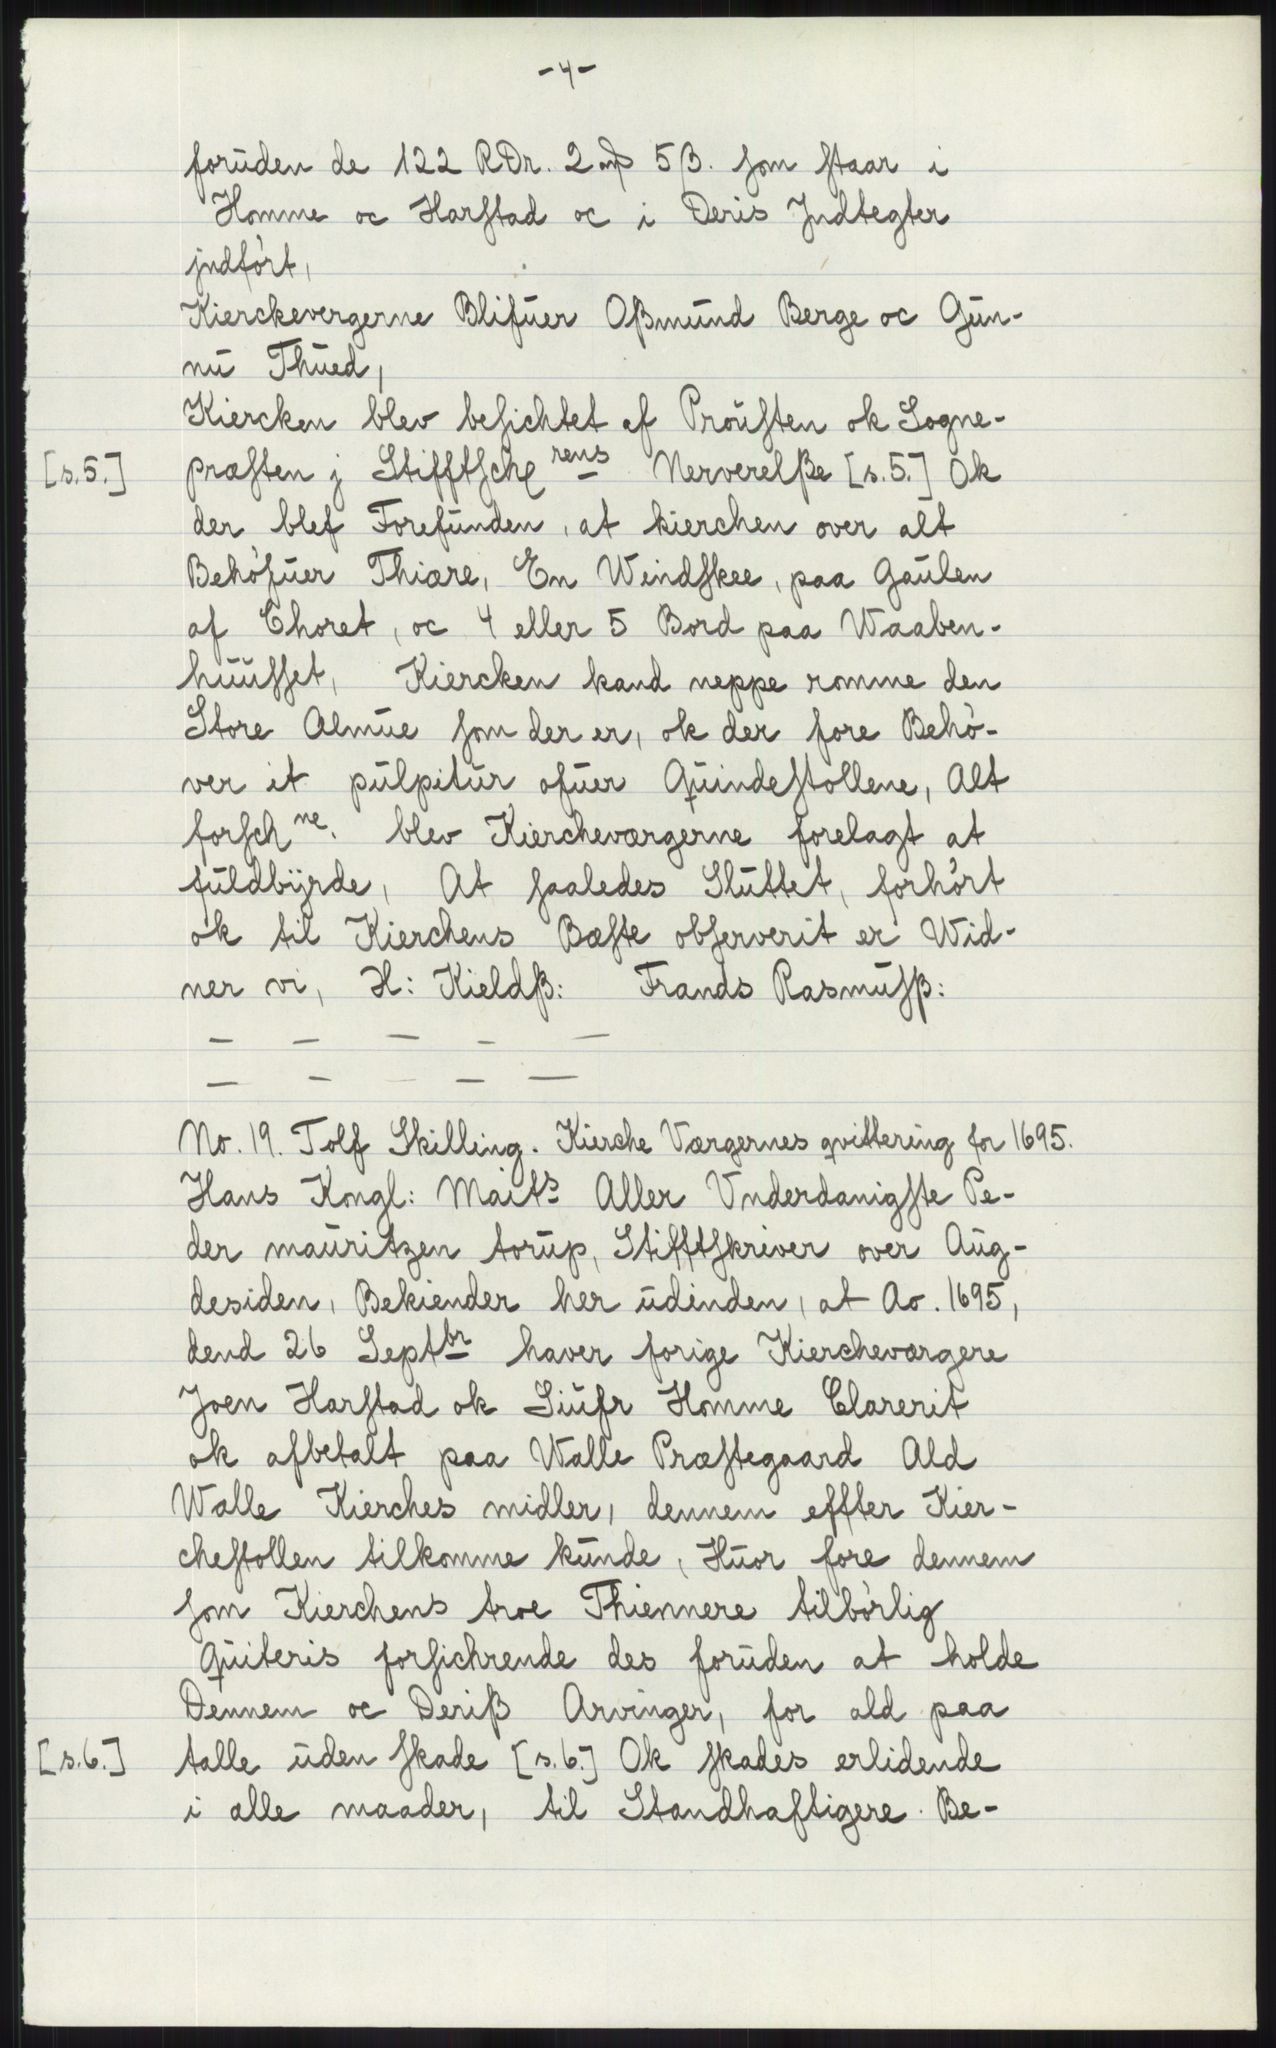 -4-
foruden de 122 RDr. 2 mƒ 5ß. som staar i
Homme oc Harstad oc i Deris Jndtegter
jndført,
Kierckevergerne Blifuer Oßmund Berge oc Gun-
nu Thued,
Kiercken blev besichtet af Prousten ok Sogne-
[s.5.] præsten j Stifftsch rens Nerverelße [s.5.] Ok
der blef Forefunden, at kierchen over alt
Behøfuer Thiære, En Windskee, paa Gaulen
af Choret, oc 4 eller 5 Bord paa Waaben-
huusset, Kiercken kand neppe romme den
Store Almue som der er, ok der fore Behø-
ver it pulpitur ofuer Quindestollene, Alt
forsch ne. blev Kiercheværgerne forelagt at
fuldbyrde, At saaledes Sluttet, forhørt
ok til Kierchens Bæste observerit er Wid-
ner vi, H: Kieldß: Frands Rasmusß:
No. 19. Tolf Skilling. Kirche Værgernes qvittering for 1695.
Hans Kongl: Maits Aller Vnderdanigste Pe-
der mauritzen torup, Stifftskriver over Aug-
desiden, Bekiender her udinden, at Ao. 1695,
dend 26 Septbr haver forige Kiercheværgere
Joen Harstad ok Siufr Homme Clarerit
ok afbetalt paa Walle Præstegaard Ald
Walle Kierches midler, dennem effter Kier-
chestollen tilkomme kunde, Huor fore dennem
som Kierchens troe Thiennere tilbørlig
Quiteris forsichrende des foruden at holde
Dennem oc Deriß Arvinger, for ald paa
[s.6.] talle uden skade [s.6.] Ok skades erlidende
i alle maader, til Standhaftigere Be-